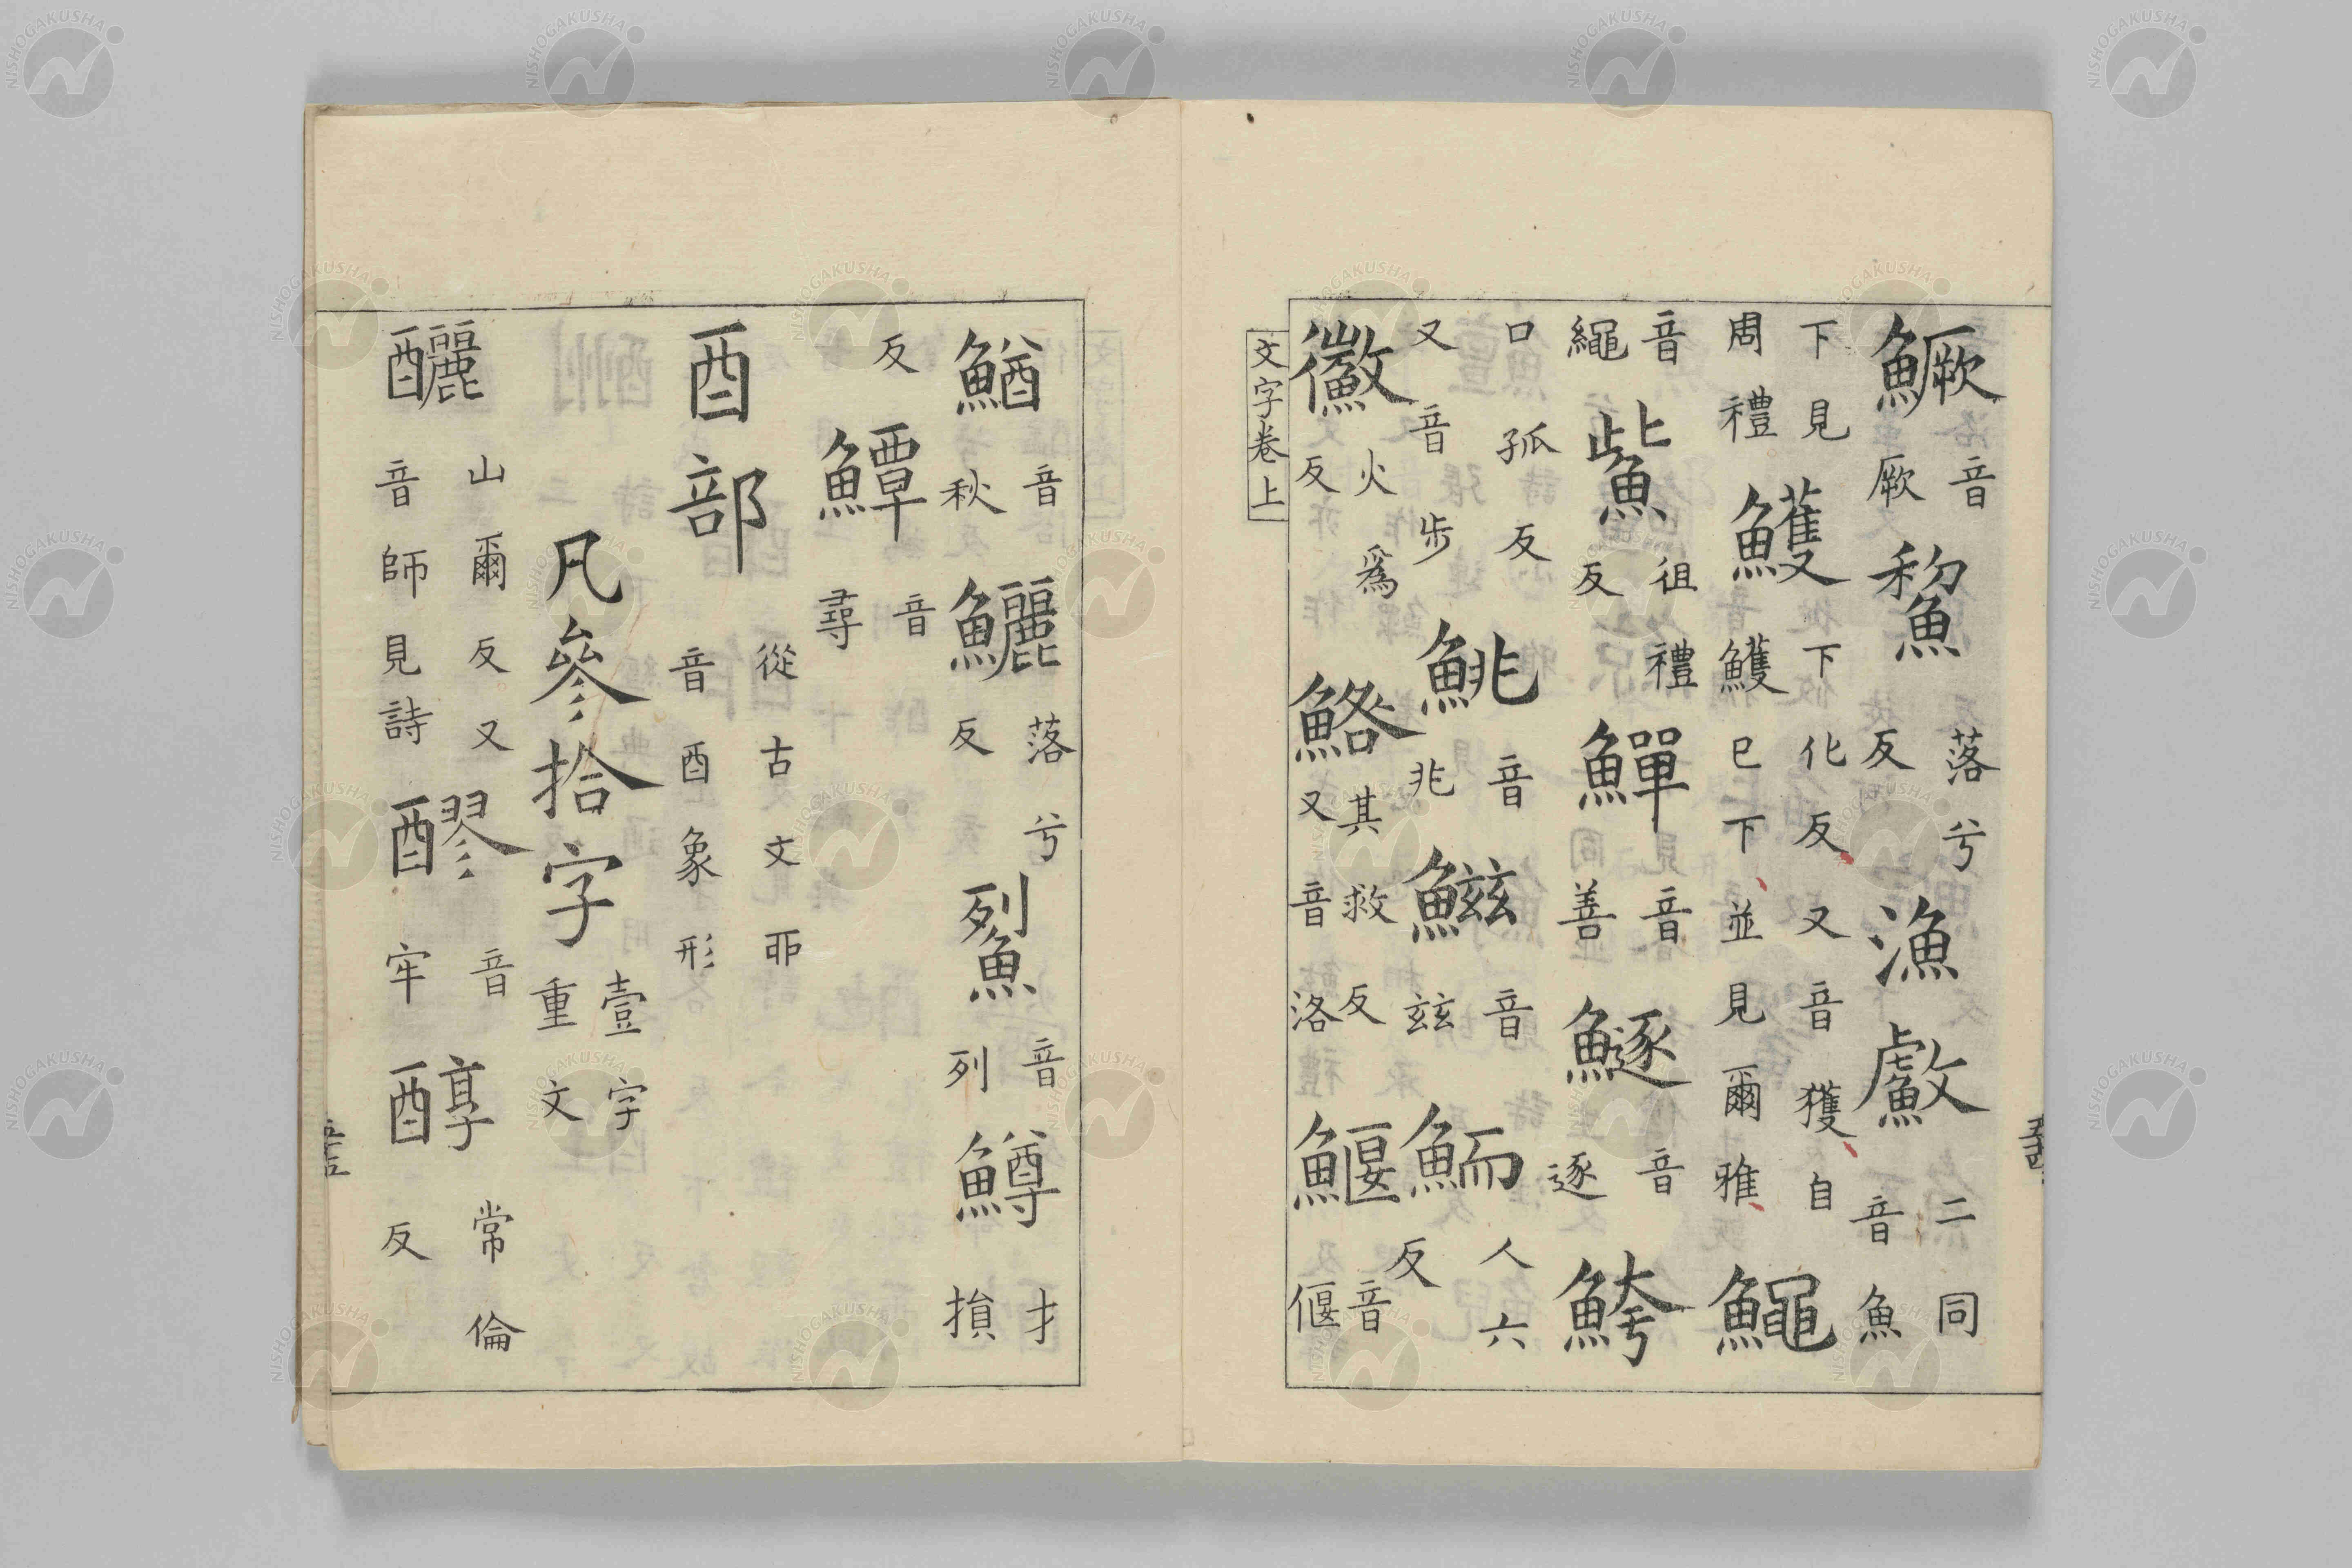 鱖音厥鯬落兮反漁䱷二同音魚
下見周禮鱯下化反又音獲自鱯已下並見爾雅鱦
音繩鮆徂禮反鱓音善鱁音逐鮬
口孤反又音步鮡音兆鰦音玆鮞人六反
鰴火爲反鯦其救反又音洛鰋音偃
文字卷上
鰌音秋鱺落兮反鮤音列鱒才損
反鱏音尋
酉部從古文丣音酉象形
凡參拾字壹字重文
釃山爾反又音師見詩醪音牢醇常倫反